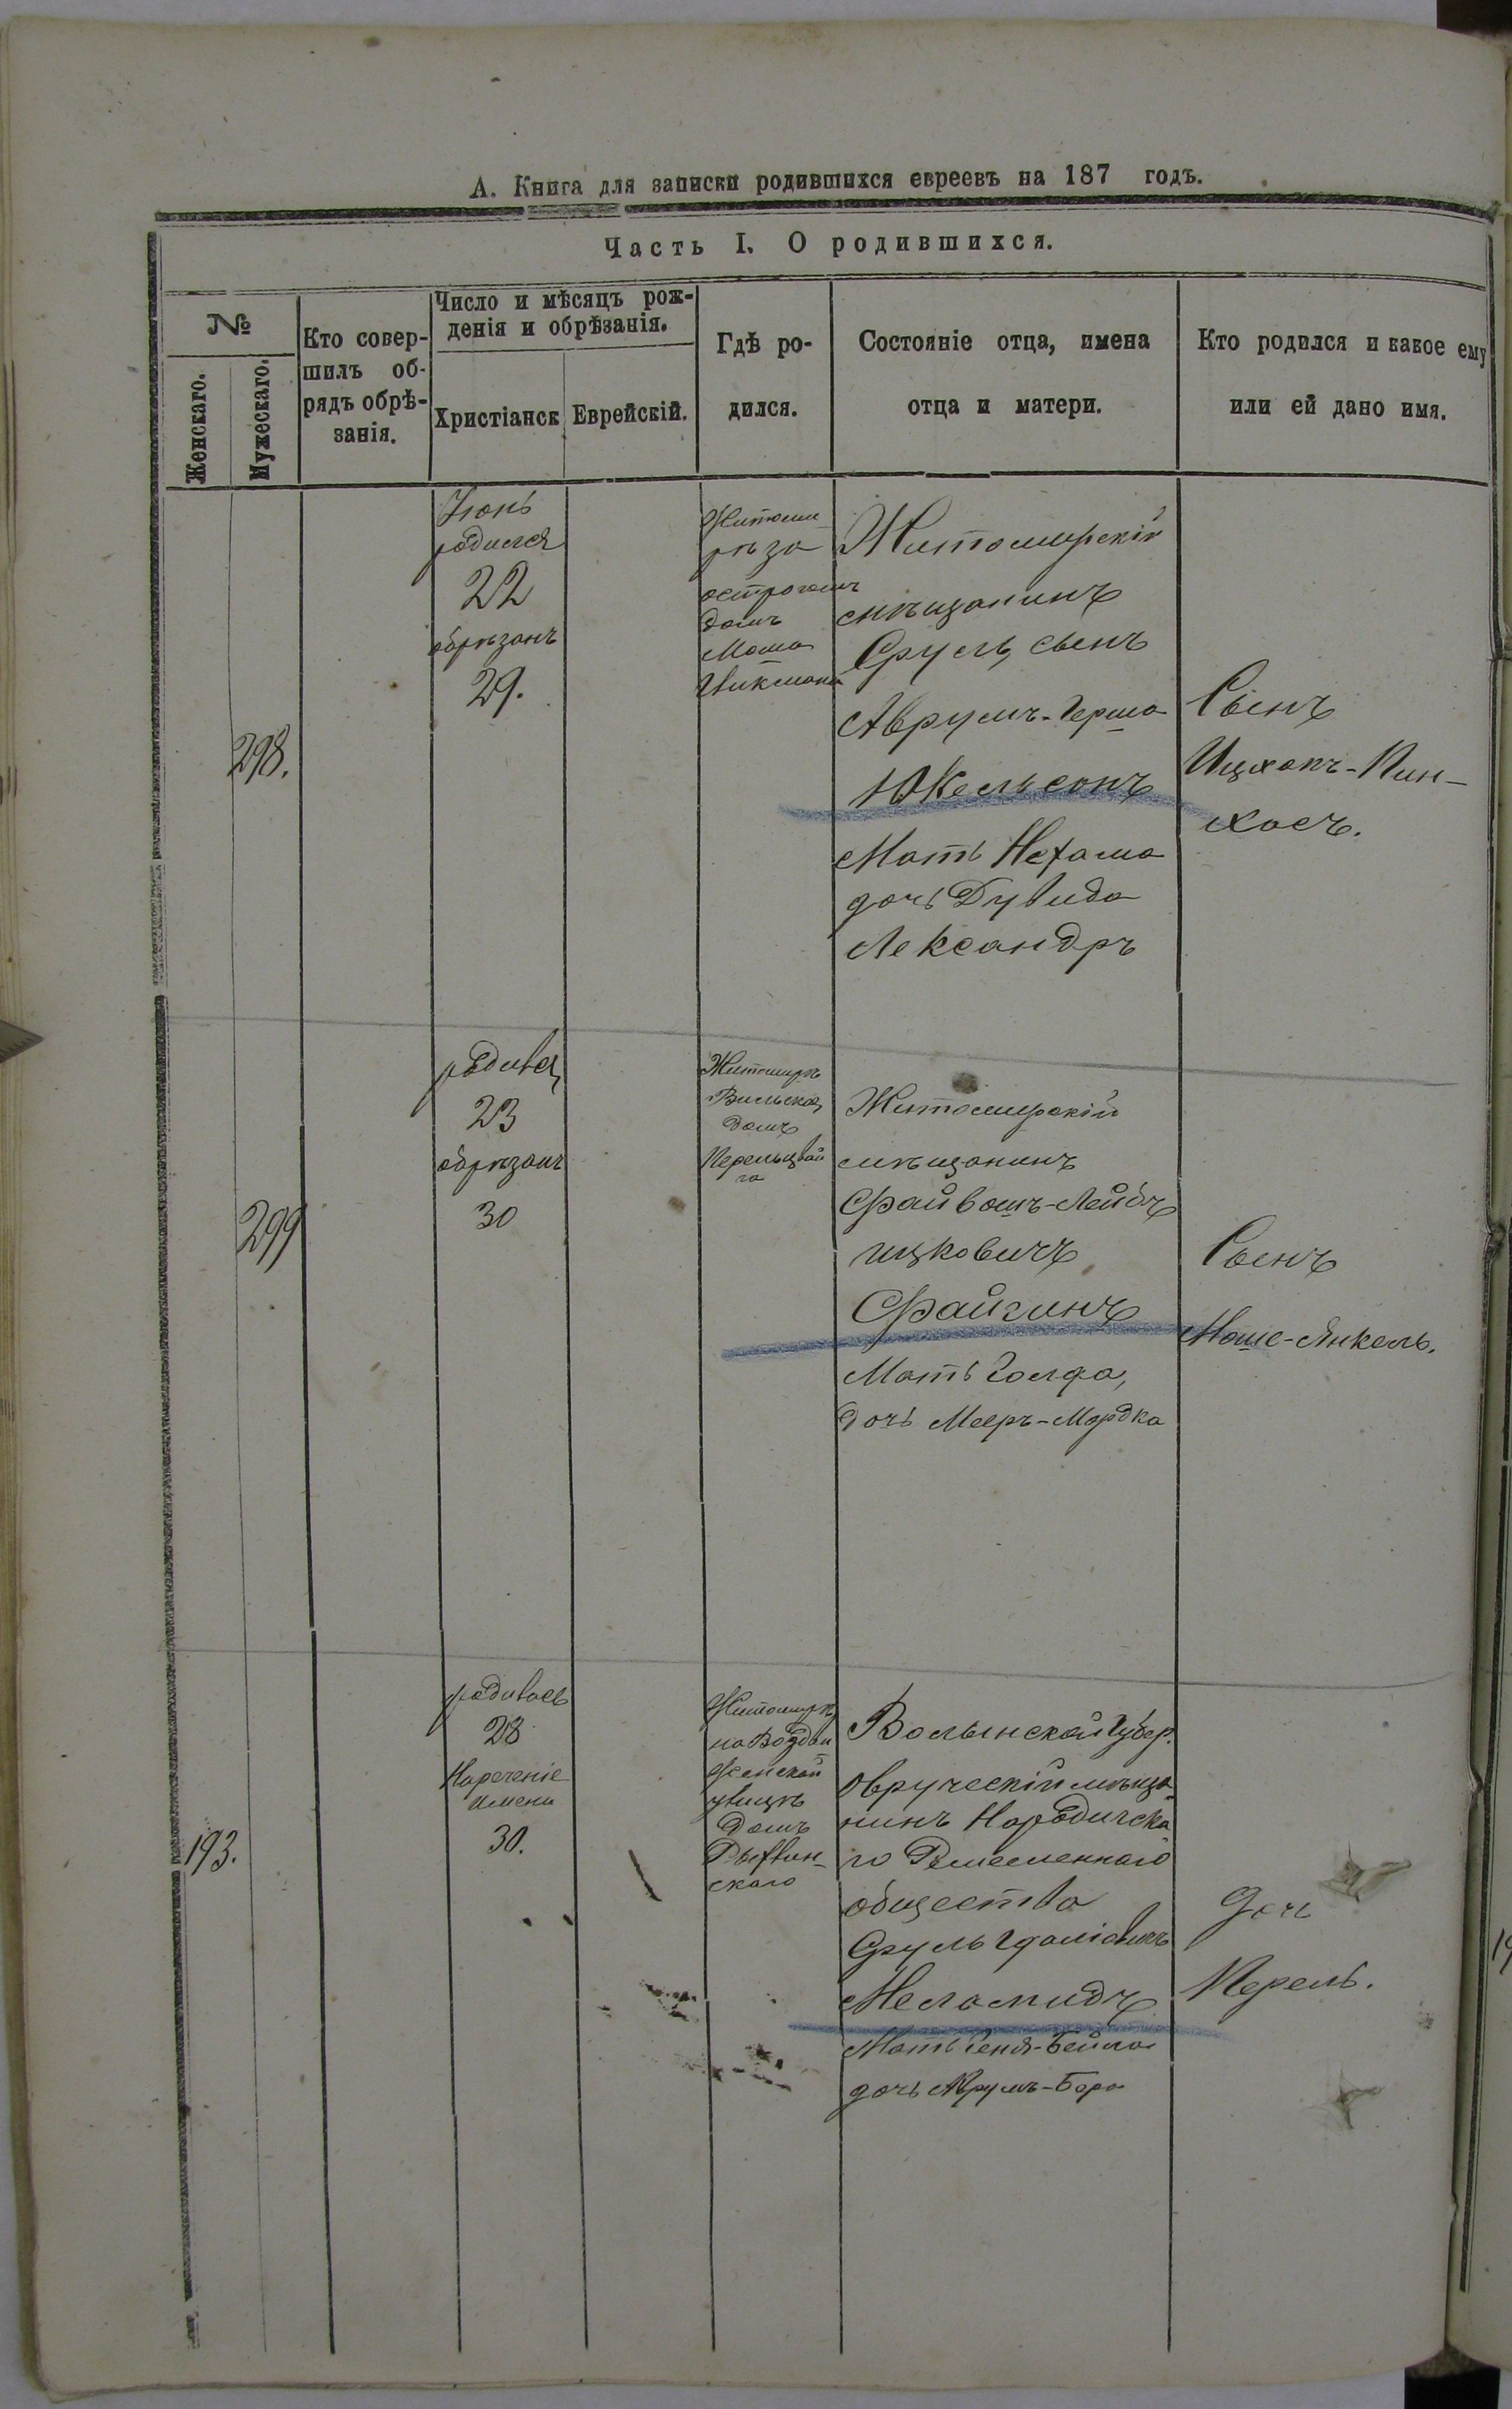 А. Книга для записки родившихся евреевъ на 187 годъ.
Часть I. О родившихся.
№
Женскаго.
Мужескаго.
Кто совер-
шилъ об-
рядъ обрѣ-
занія.
Число и мѣсяцъ рож-
денія и обрѣзанія.
Христіанск
Еврейскій.
Гдѣ ро-
дился.
Состояніе отца, имена
отца и матери.
Кто родился и какое ему
или ей дано имя.
298.
Іюнь
родился
22
обрѣзанъ
29.
Житоми
рѣ за
острогомъ
домъ
Мошка
Житомирскій
мѣщанинъ
Сруль, сынъ
Аврумъ-Герша
Юкельсонъ
Мать Нехама
дочь Дувида
Лександръ
Сынъ
Ицхокъ-Пин-
хосъ.
299
родився
23
обрѣзанъ
30
Житомиръ
Вильская
домъ
Житомирскій
мѣщанинъ
Файвошъ-Лейбъ
ицковичъ
Файгинъ
Мать Голда,
дочь Мееръ-Мордка
Сынъ
Моше-Янкель.
193.
родилась
28
Нареченіе
имени
30.
Житомирѣ
на Воздви
женской
улицѣ
домъ
скаго
Волынской Губер.
Овручскій мѣща
нинъ Народичска
го Ремесленнаго
общества
Сруль Гдаліовичъ
Меламидъ
Мать Геня-Бейла
дочь Аврумъ-Бера
Дочь
Перель.
19